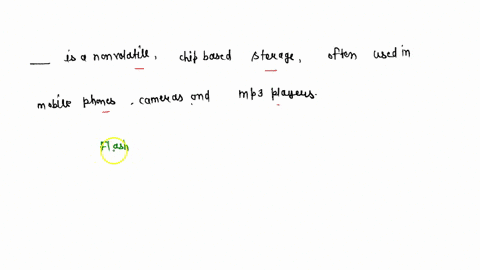 ___ is a nonvolatile, chip based storage, often used in
mobile phones, cameras and mp3 players.
Flash